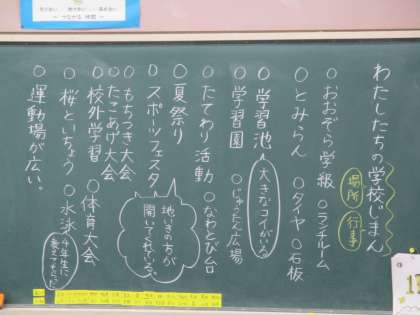 わたしたちの学校じまん
場所 行事
○おおぞら学級 ○ランチルーム
○とみらん ○タイヤ ○石板
○学習池 大きなコイがいる。
○学習園 ○じゅうたん広場
○たてわり活動 ○なわとび台
○夏祭り
○スポーツフェスタ
地いきの方が
開いてくれている。
○もちつき大会
○たこあげ大会
○校外学習 ○体育大会
○桜といちょう ○水泳
4年生に
教えてもらった
○運動場が広い。